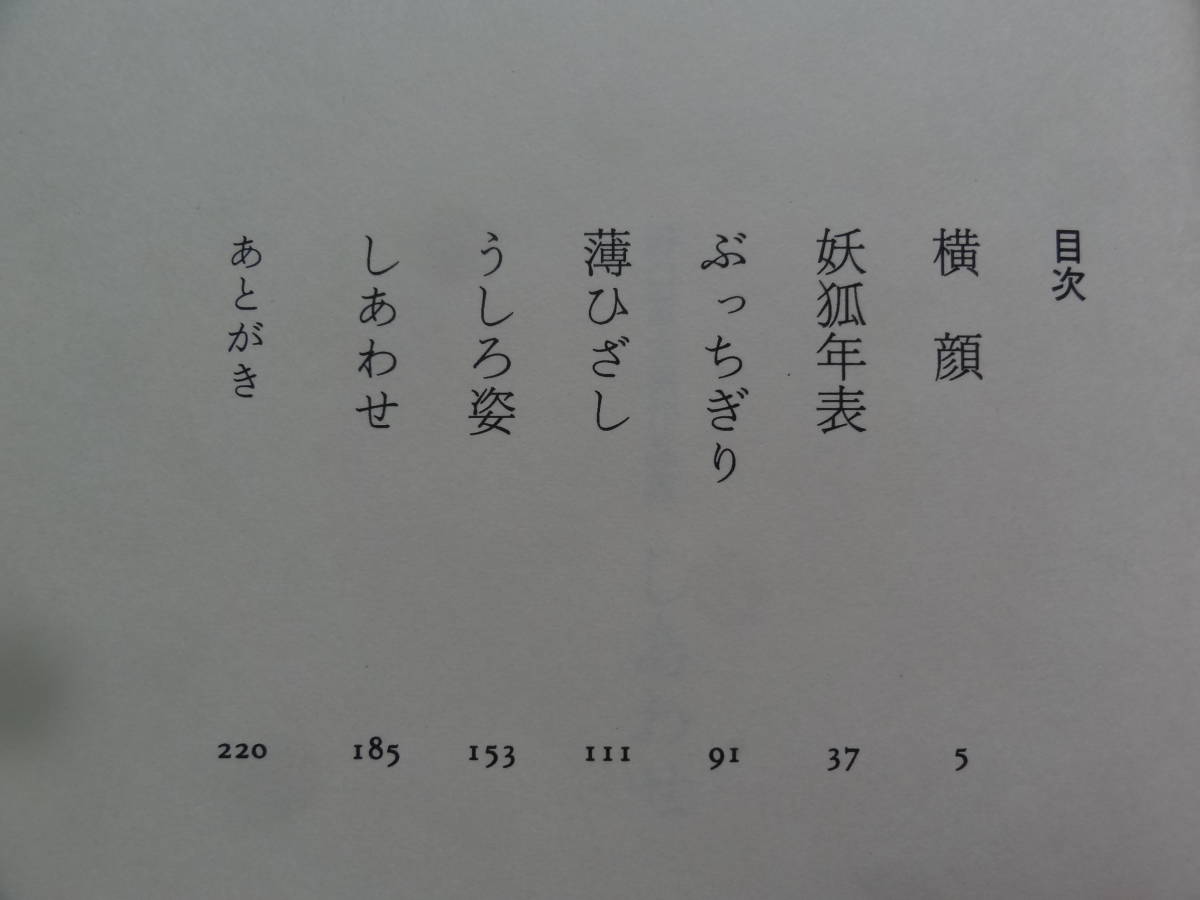 目次
横 顔 5
妖狐年表 37
ぶっちぎり 91
薄ひざし 111
うしろ姿 153
しあわせ 185
あとがき 220